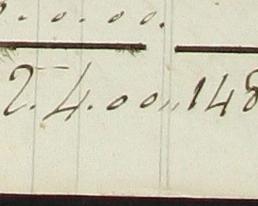 . 0. 00.
2. 4. 00,, 148